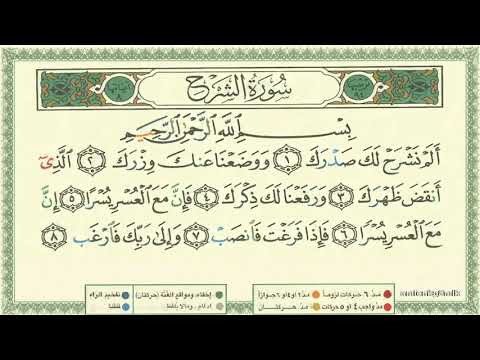 سُورَةُ الشَّرْحِ
بِسْمِ اللَّهِ الرَّحْمَٰنِ الرَّحِيمِ
أَلَمْ نَشْرَحْ لَكَ صَدْرَكَ ١ وَوَضَعْنَا عَنكَ وِزْرَكَ ٢ الَّذِي
أَنقَضَ ظَهْرَكَ ٣ وَرَفَعْنَا لَكَ ذِكْرَكَ ٤ فَإِنَّ مَعَ الْعُسْرِ يُسْرًا ٥ إِنَّ
مَعَ الْعُسْرِ يُسْرًا ٦ فَإِذَا فَرَغْتَ فَانصَبْ ٧ وَإِلَىٰ رَبِّكَ فَارْغَب ٨
مدّ ٦ حركات لزوماً مدّ ٢ أو ٤ أو ٦ جوازاً إخفاء، ومواقع الغُنَّة (حركتان) تفخيم الراء
مدّ واجب ٤ أو ٥ حركات مدّ حركتان إدغام، وما لا يُلفظ قلقلة